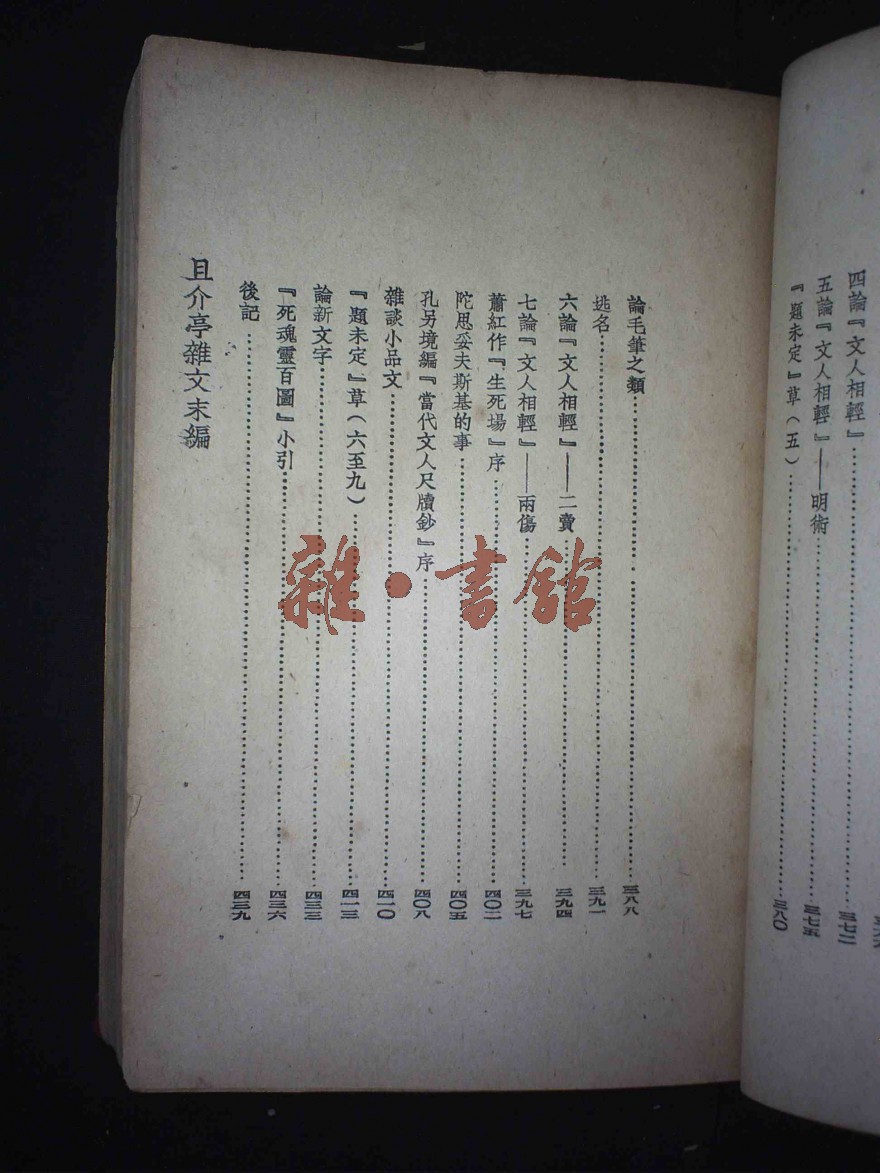 四論『文人相輕』……三七二
五論『文人相輕』——明術……三七五
『題未定』草(五)……三八〇
論毛筆之類……三八八
逃名……三九一
六論『文人相輕』——二賣……三九四
七論『文人相輕』——兩傷……三九七
蕭紅作『生死場』序……四〇二
陀思妥夫斯基的事……四〇五
孔另境編『當代文人尺牘鈔』序……四〇八
雜談小品文……四一〇
『題未定』草(六至九)……四一三
論新文字……四三三
『死魂靈百圖』小引……四三六
後記……四三九
且介亭雜文末編
雜·書館